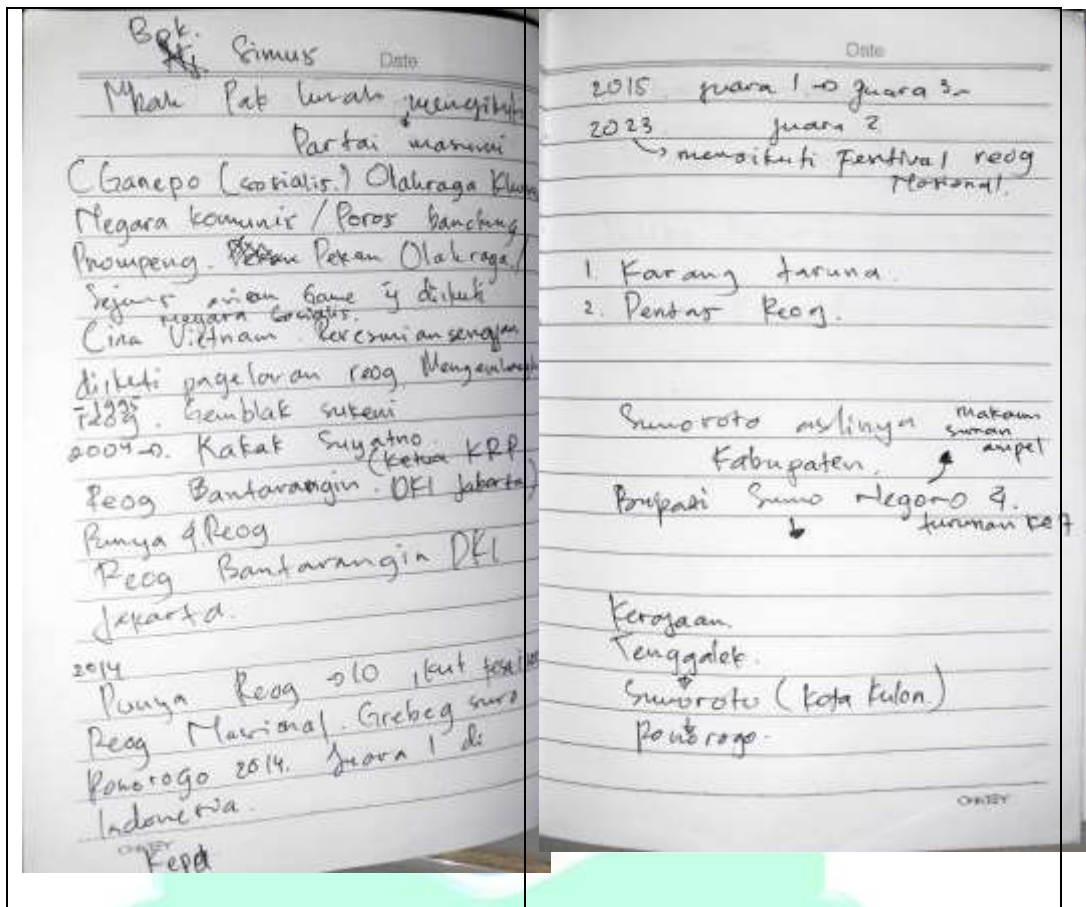 Bpk. Hj. Simus
Date
Mbah Pak lurah mengikuti
Partai masumi
(Ganepo (sosialis.) Olahraga Khusus
Negara komunis / Poros bandung
Pnompeng. Pekan Olahraga /
Sejenis asian Game yg diikuti
negara sosialis.
Cina Vietnam. Peresmian
diikuti pagelaran reog,
1995. Gemblak sukeni
2004 → Kakak Suyatno
(Ketua KRP
Reog Bantarangin. DKI Jakarta)
Punya 4 Reog
Reog Bantarangin DKI
Jakarta.
2014
Punya Reog → 10 ikut
Reog Nasional. Grebeg suro
Ponorogo 2014. Juara 1 di
Indonesia.
Date
2015 juara 1 → juara 3
2023 juara 2
↳ mengikuti Festival reog
Nasional.
1. Karang taruna.
2. Pentas Reog.
Sumoroto aslinya makam
sunan
ampel
Kabupaten.
Bupati Sumo Negoro 4.
turunan ke 7
Kerajaan
Tenggalek.
Sumoroto (Kota Kulon.)
Ponorogo.